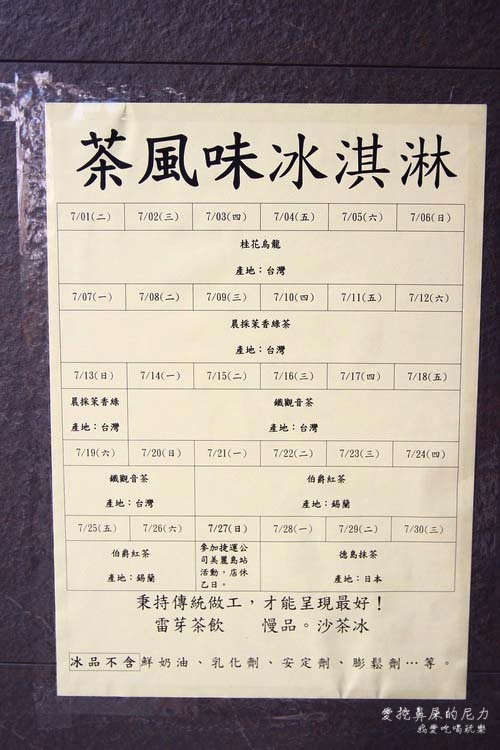 茶風味冰淇淋
7/01(二) 7/02(三) 7/03(四) 7/04(五) 7/05(六) 7/06(日)
桂花烏龍
產地：台灣
7/07(一) 7/08(二) 7/09(三) 7/10(四) 7/11(五) 7/12(六)
晨採茉香綠茶
產地：台灣
7/13(日) 7/14(一) 7/15(二) 7/16(三) 7/17(四) 7/18(五)
晨採茉香綠 鐵觀音茶
產地：台灣 產地：台灣
7/19(六) 7/20(日) 7/21(一) 7/22(二) 7/23(三) 7/24(四)
鐵觀音茶 伯爵紅茶
產地：台灣 產地：錫蘭
7/25(五) 7/26(六) 7/27(日) 7/28(一) 7/29(二) 7/30(三)
伯爵紅茶
產地：錫蘭
參加捷運公
司美麗島站
活動，店休
乙日。
德島抹茶
產地：日本
秉持傳統做工，才能呈現最好！
雷芽茶飲 慢品。沙茶冰
冰品不含鮮奶油、乳化劑、安定劑、膨鬆劑…等。
愛挖鼻屎的尼力
我愛吃喝玩樂